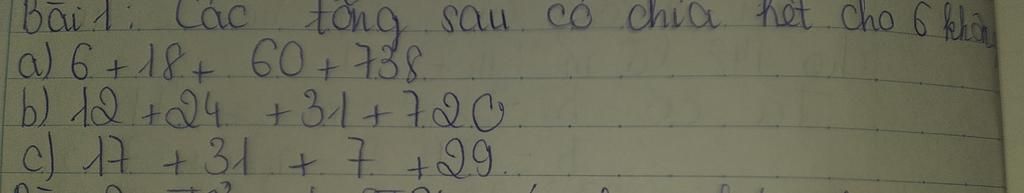 Bài 1: Các tổng sau có chia hết cho 6 không
a) 6 + 18 + 60 + 738
b) 12 + 24 + 31 + 720
c) 17 + 31 + 7 + 29